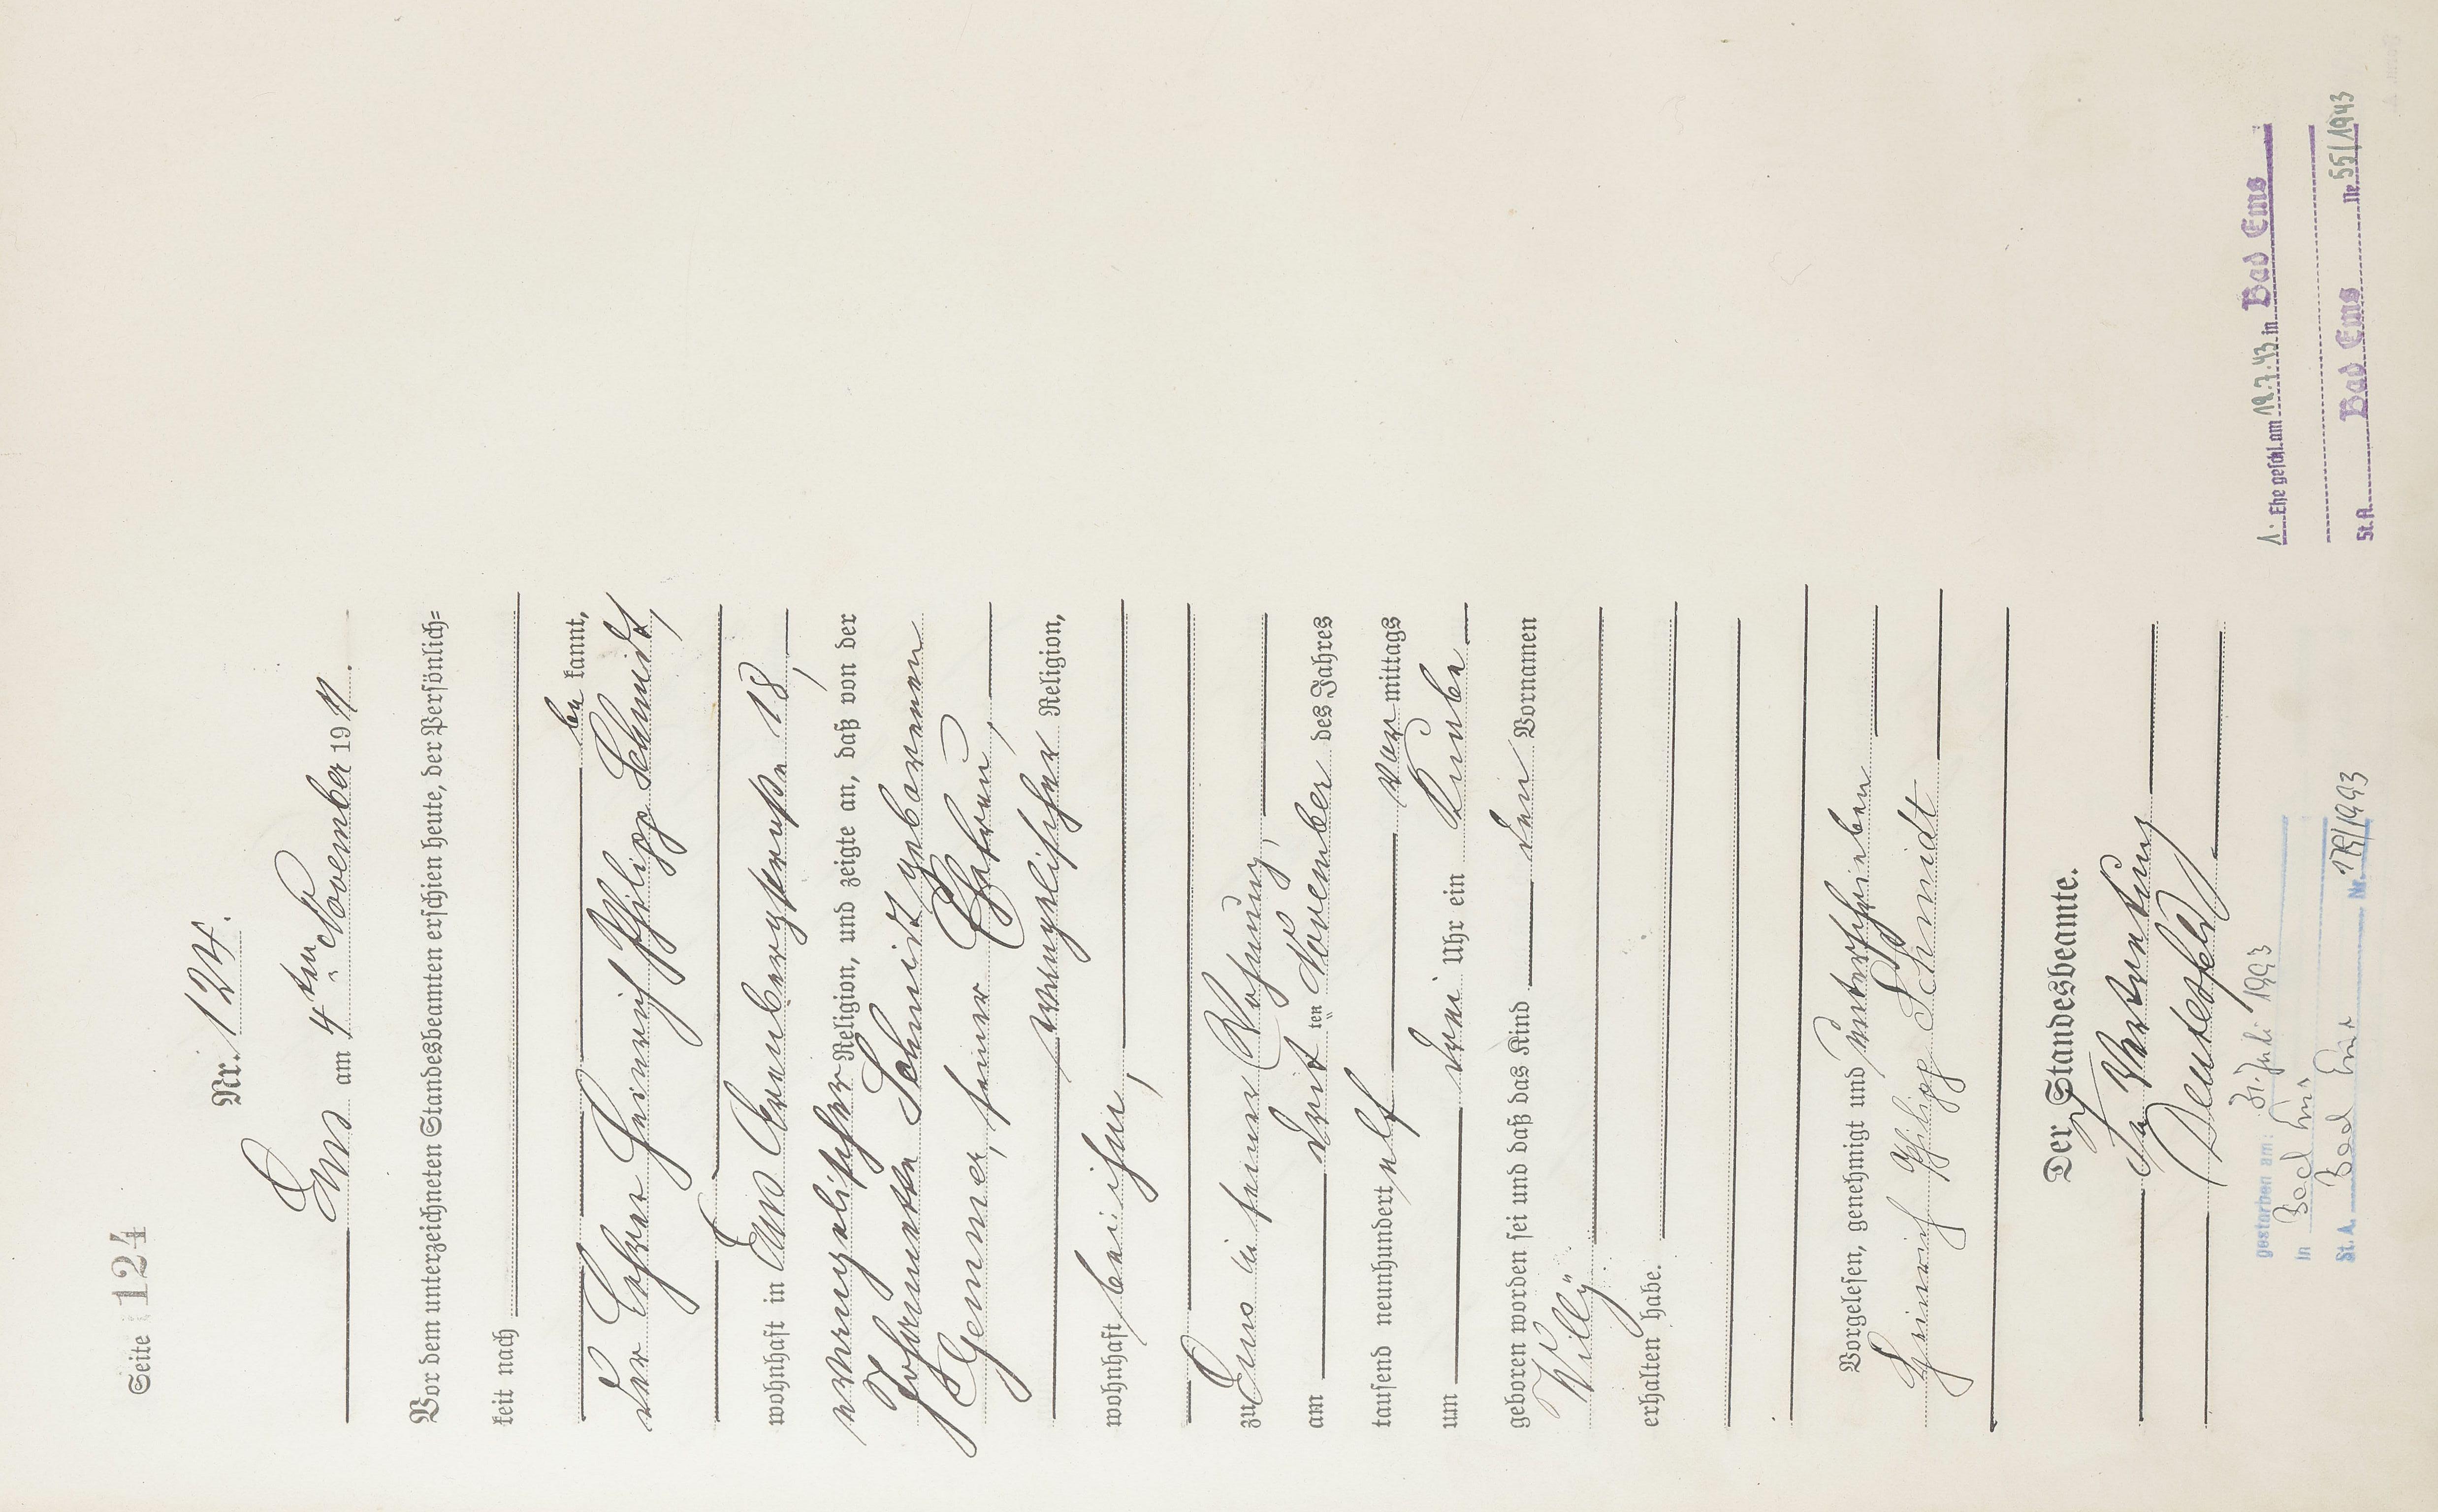 Seite 124
Nr. 124.
Ems am 4ten November 1911.
Vor dem unterzeichneten Standesbeamten erschien heute, der Persönlich=
keit nach
be kannt,
der Lehrer Heinrich Philipp Schmidt,
wohnhaft in Ems Arenbergstraße 18,
evangelischer Religion, und zeigte an, daß von der
Johannette Schmidt geborenen
Gemmer, seiner Ehefrau,
evangelischer Religion,
wohnhaft bei ihm,
zu Ems in seiner Wohnung,
am dritten November des Jahres
tausend neunhundert elf vor mittags
um drei Uhr ein Knabe
geboren worden sei und daß das Kind den Vornamen
Willy
erhalten habe.
Vorgelesen, genehmigt und unterschrieben
Heinrich Philipp Schmidt
Der Standesbeamte.
In Vertretung
gestorben am: 31. Juli 1993
in Bad Ems
St. A. Bad Ems Nr. 179/1993
1. Ehe geschl. am 19.7.43 in Bad Ems
St. A. Bad Ems Nr. 55/1943